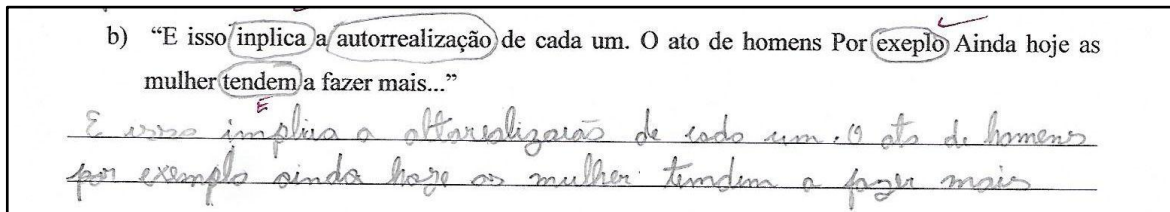 b) “E isso inplica a autorrealização de cada um. O ato de homens Por exeplo Ainda hoje as
mulher tendem a fazer mais...”
E
E isso implica a altorealizacão de cada um. O ato de homens
por exemplo ainda hoje as mulher tendem a fazer mais